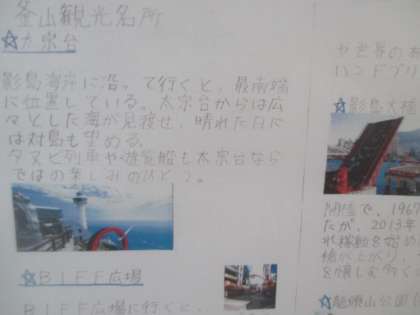 釜山観光名所
☆太宗台
影島海岸に沿って行くと、最南端
に位置している。太宗台からは広
々とした海が見渡せ、晴れた日に
は対島も望める。
タヌビ列車や遊覧船も太宗台なら
ではの楽しみのひとつ。
☆BIFF広場
BIFF広場に行くと、
や世界の
ハンドプリ
☆影島大橋
開陸で、1967
たが、2013年
北稼動を始め
橋が上がり、
を慎む行く
☆龍頭山公園